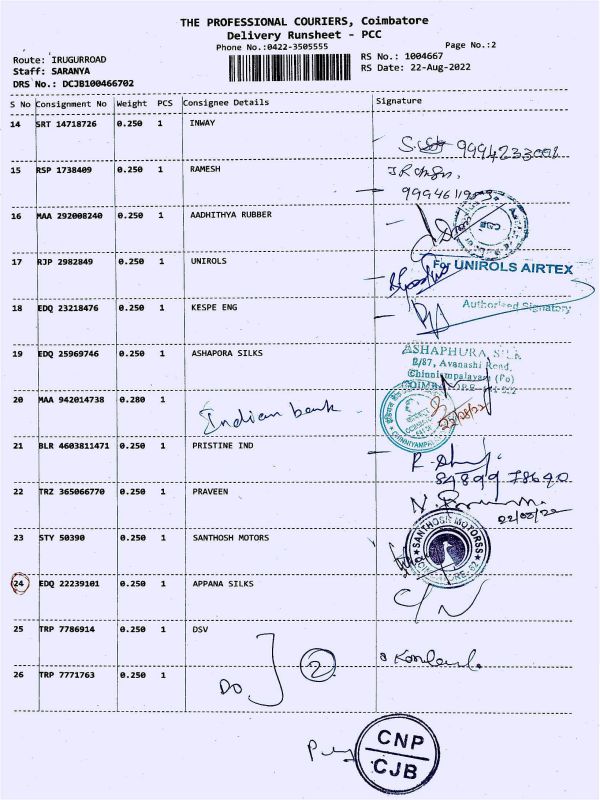 THE PROFESSIONAL COURIERS, Coimbatore
Delivery Runsheet - PCC
Phone No.:0422-3505555
Page No.:2
Route: IRUGURROAD
RS No.: 1004667
Staff: SARANYA
RS Date: 22-Aug-2022
DRS No.: DCJB100466702
S No Consignment No Weight PCS Consignee Details Signature
14 SRT 14718726 0.250 1 INWAY
9994233001
15 RSP 1738409 0.250 1 RAMESH
16 MAA 292008240 0.250 1 AADHITHYA RUBBER
CJB
17 RJP 2982849 0.250 1 UNIROLS
For UNIROLS AIRTEX
18 EDQ 23218476 0.250 1 KESPE ENG
Authorised Signatory
19 EDQ 25969746 0.250 1 ASHAPORA SILKS
ASHAPHURA SILK
2/87, Avanashi Road,
Chinniampalayam (Po)
20 MAA 942014738 0.280 1
Indian bank
22/08/22
21 BLR 4603811471 0.250 1 PRISTINE IND
89899 78690
22 TRZ 365066770 0.250 1 PRAVEEN
22/08/22
23 STY 50390 0.250 1 SANTHOSH MOTORS
SANTHOSH MOTORSS
24 EDQ 22239101 0.250 1 APPANA SILKS
25 TRP 7786914 0.250 1 DSV
26 TRP 7771763 0.250 1
DO
2
CNP
CJB